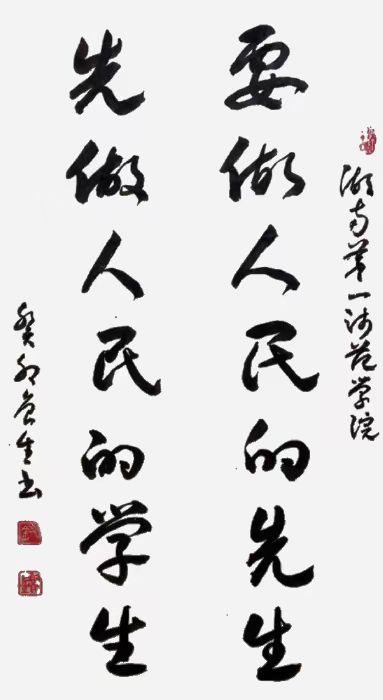 湖南第一师范学院
要做人民的先生
先做人民的学生
癸卯生书